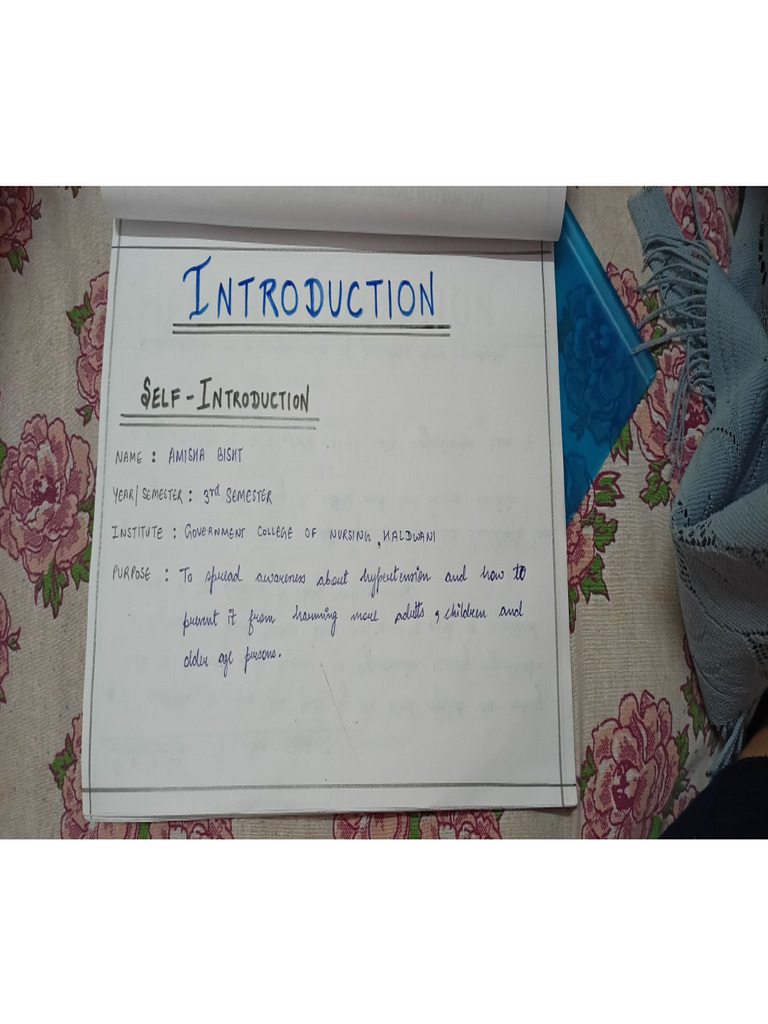 INTRODUCTION
SELF-INTRODUCTION
NAME : AMISHA BISHT
YEAR/SEMESTER : 3rd SEMESTER
INSTITUTE : GOVERNMENT COLLEGE OF NURSING, HALDWANI
PURPOSE : To spread awareness about hypertension and how to
prevent it from harming more adults, children and
older age persons.